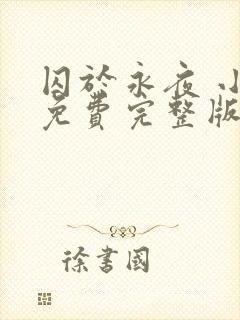 囚於永夜 小
免費完整版
徐書國